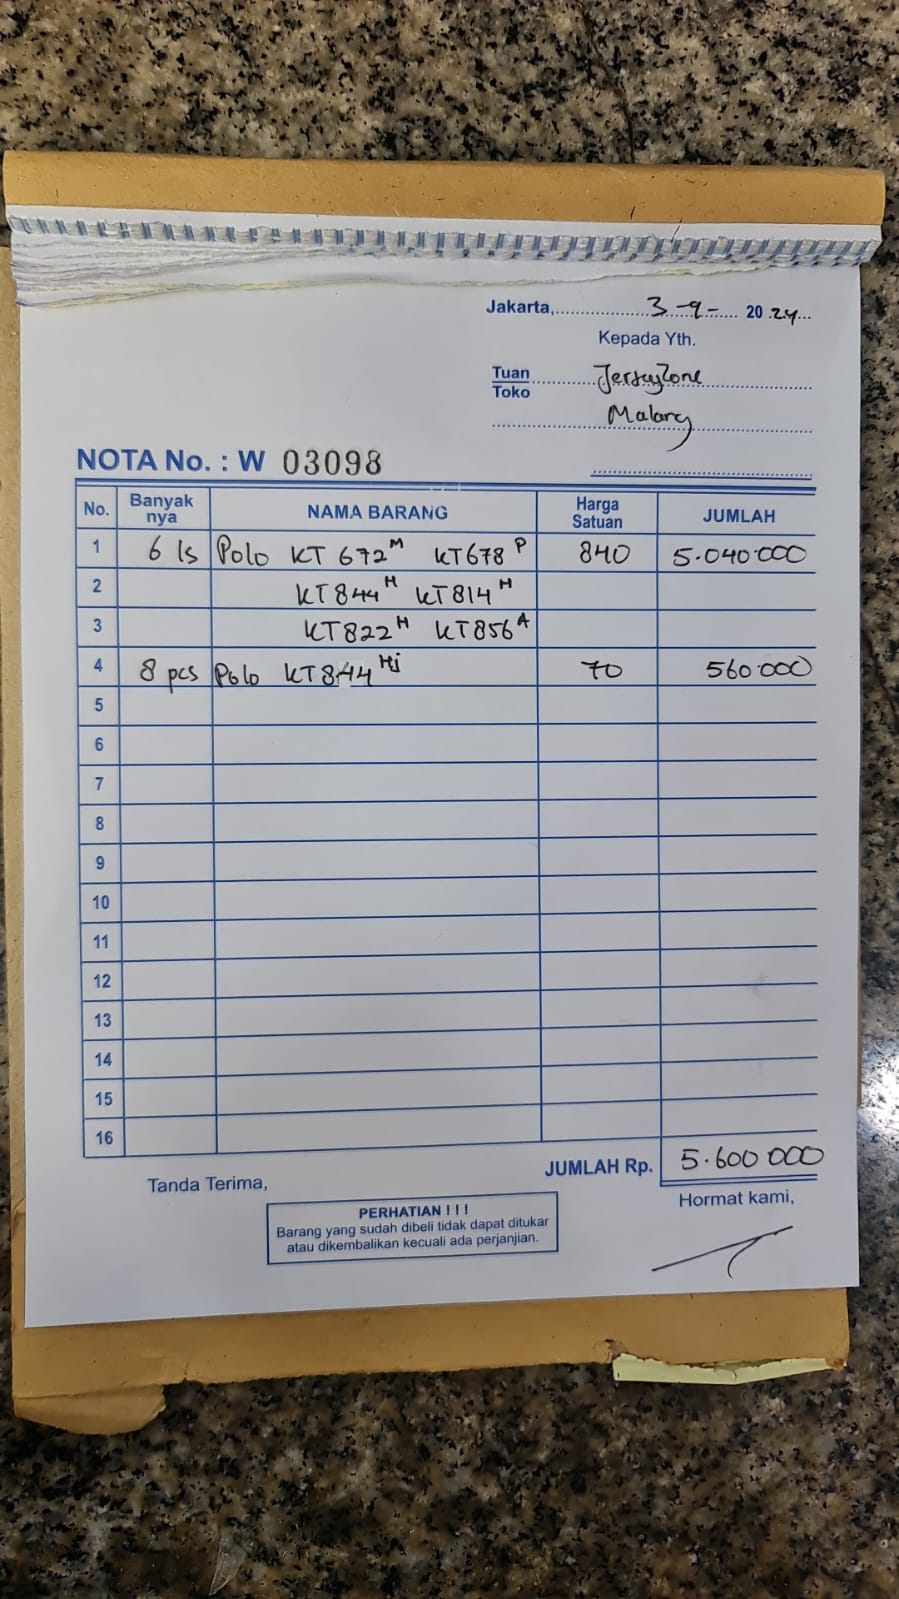 Jakarta, 3-9- 20 24
Kepada Yth.
Tuan JerseyZone
Toko
Malang
NOTA No. : W 03098
No. Banyak nya NAMA BARANG Harga Satuan JUMLAH
1 6 ls Polo KT 672 M KT678 P 840 5.040.000
2 KT844 H KT814 H
3 KT822 H KT856 A
4 8 pcs Polo KT844 Hj 70 560.000
5
6
7
8
9
10
11
12
13
14
15
16
JUMLAH Rp. 5.600 000
Tanda Terima,
Hormat kami,
PERHATIAN ! ! !
Barang yang sudah dibeli tidak dapat ditukar
atau dikembalikan kecuali ada perjanjian.